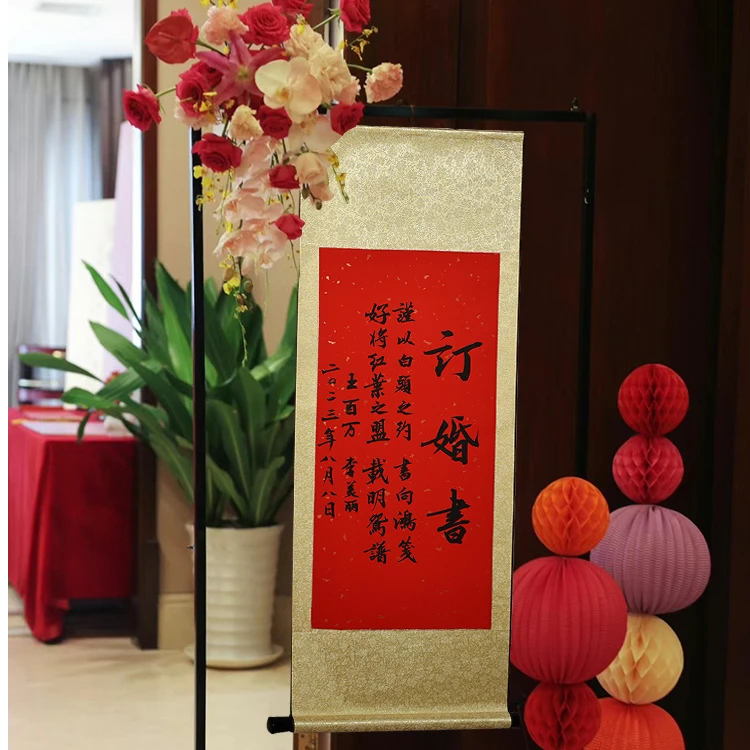 訂婚書
謹以白頭之约 書向鴻箋
好将红葉之盟 載明鴛譜
王百万 李美丽
二〇二三年八月八日